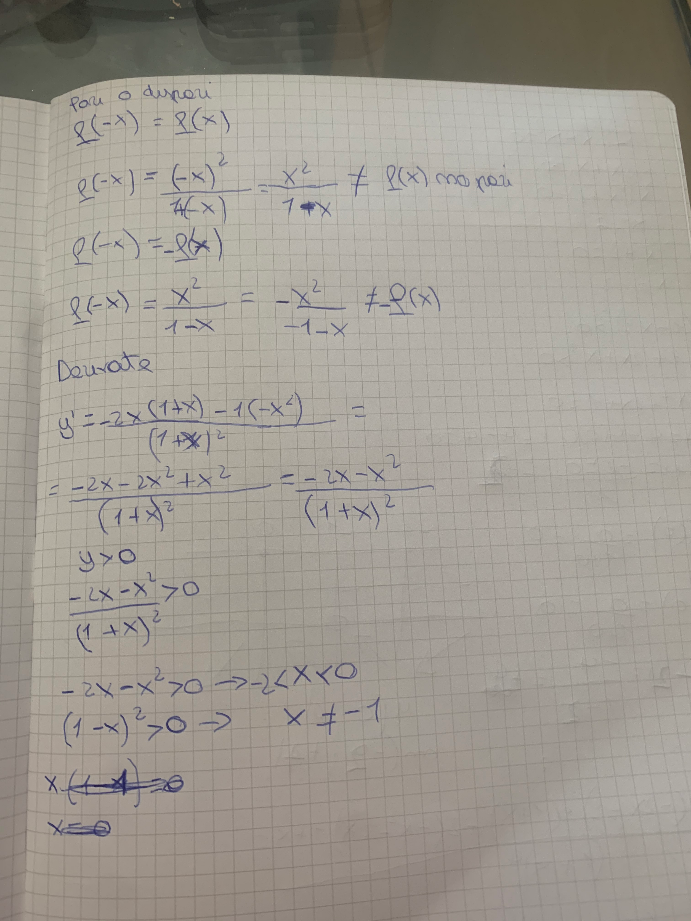 Pari o dispari
f(-x) = f(x)
f(-x) = (-x)²/1+(-x) = x²/1-x ≠ f(x) no pari
f(-x) = -f(x)
f(-x) = x²/1-x = -x²/-1-x ≠ -f(x)
Derivate
y' = -2x(1+x) - 1(-x²)/(1+x)² =
= -2x-2x²+x²/(1+x)² = -2x-x²/(1+x)²
y>0
-2x-x²/(1+x)² >0
-2x-x²>0 → -2<x<0
(1-x)²>0 → x ≠ -1